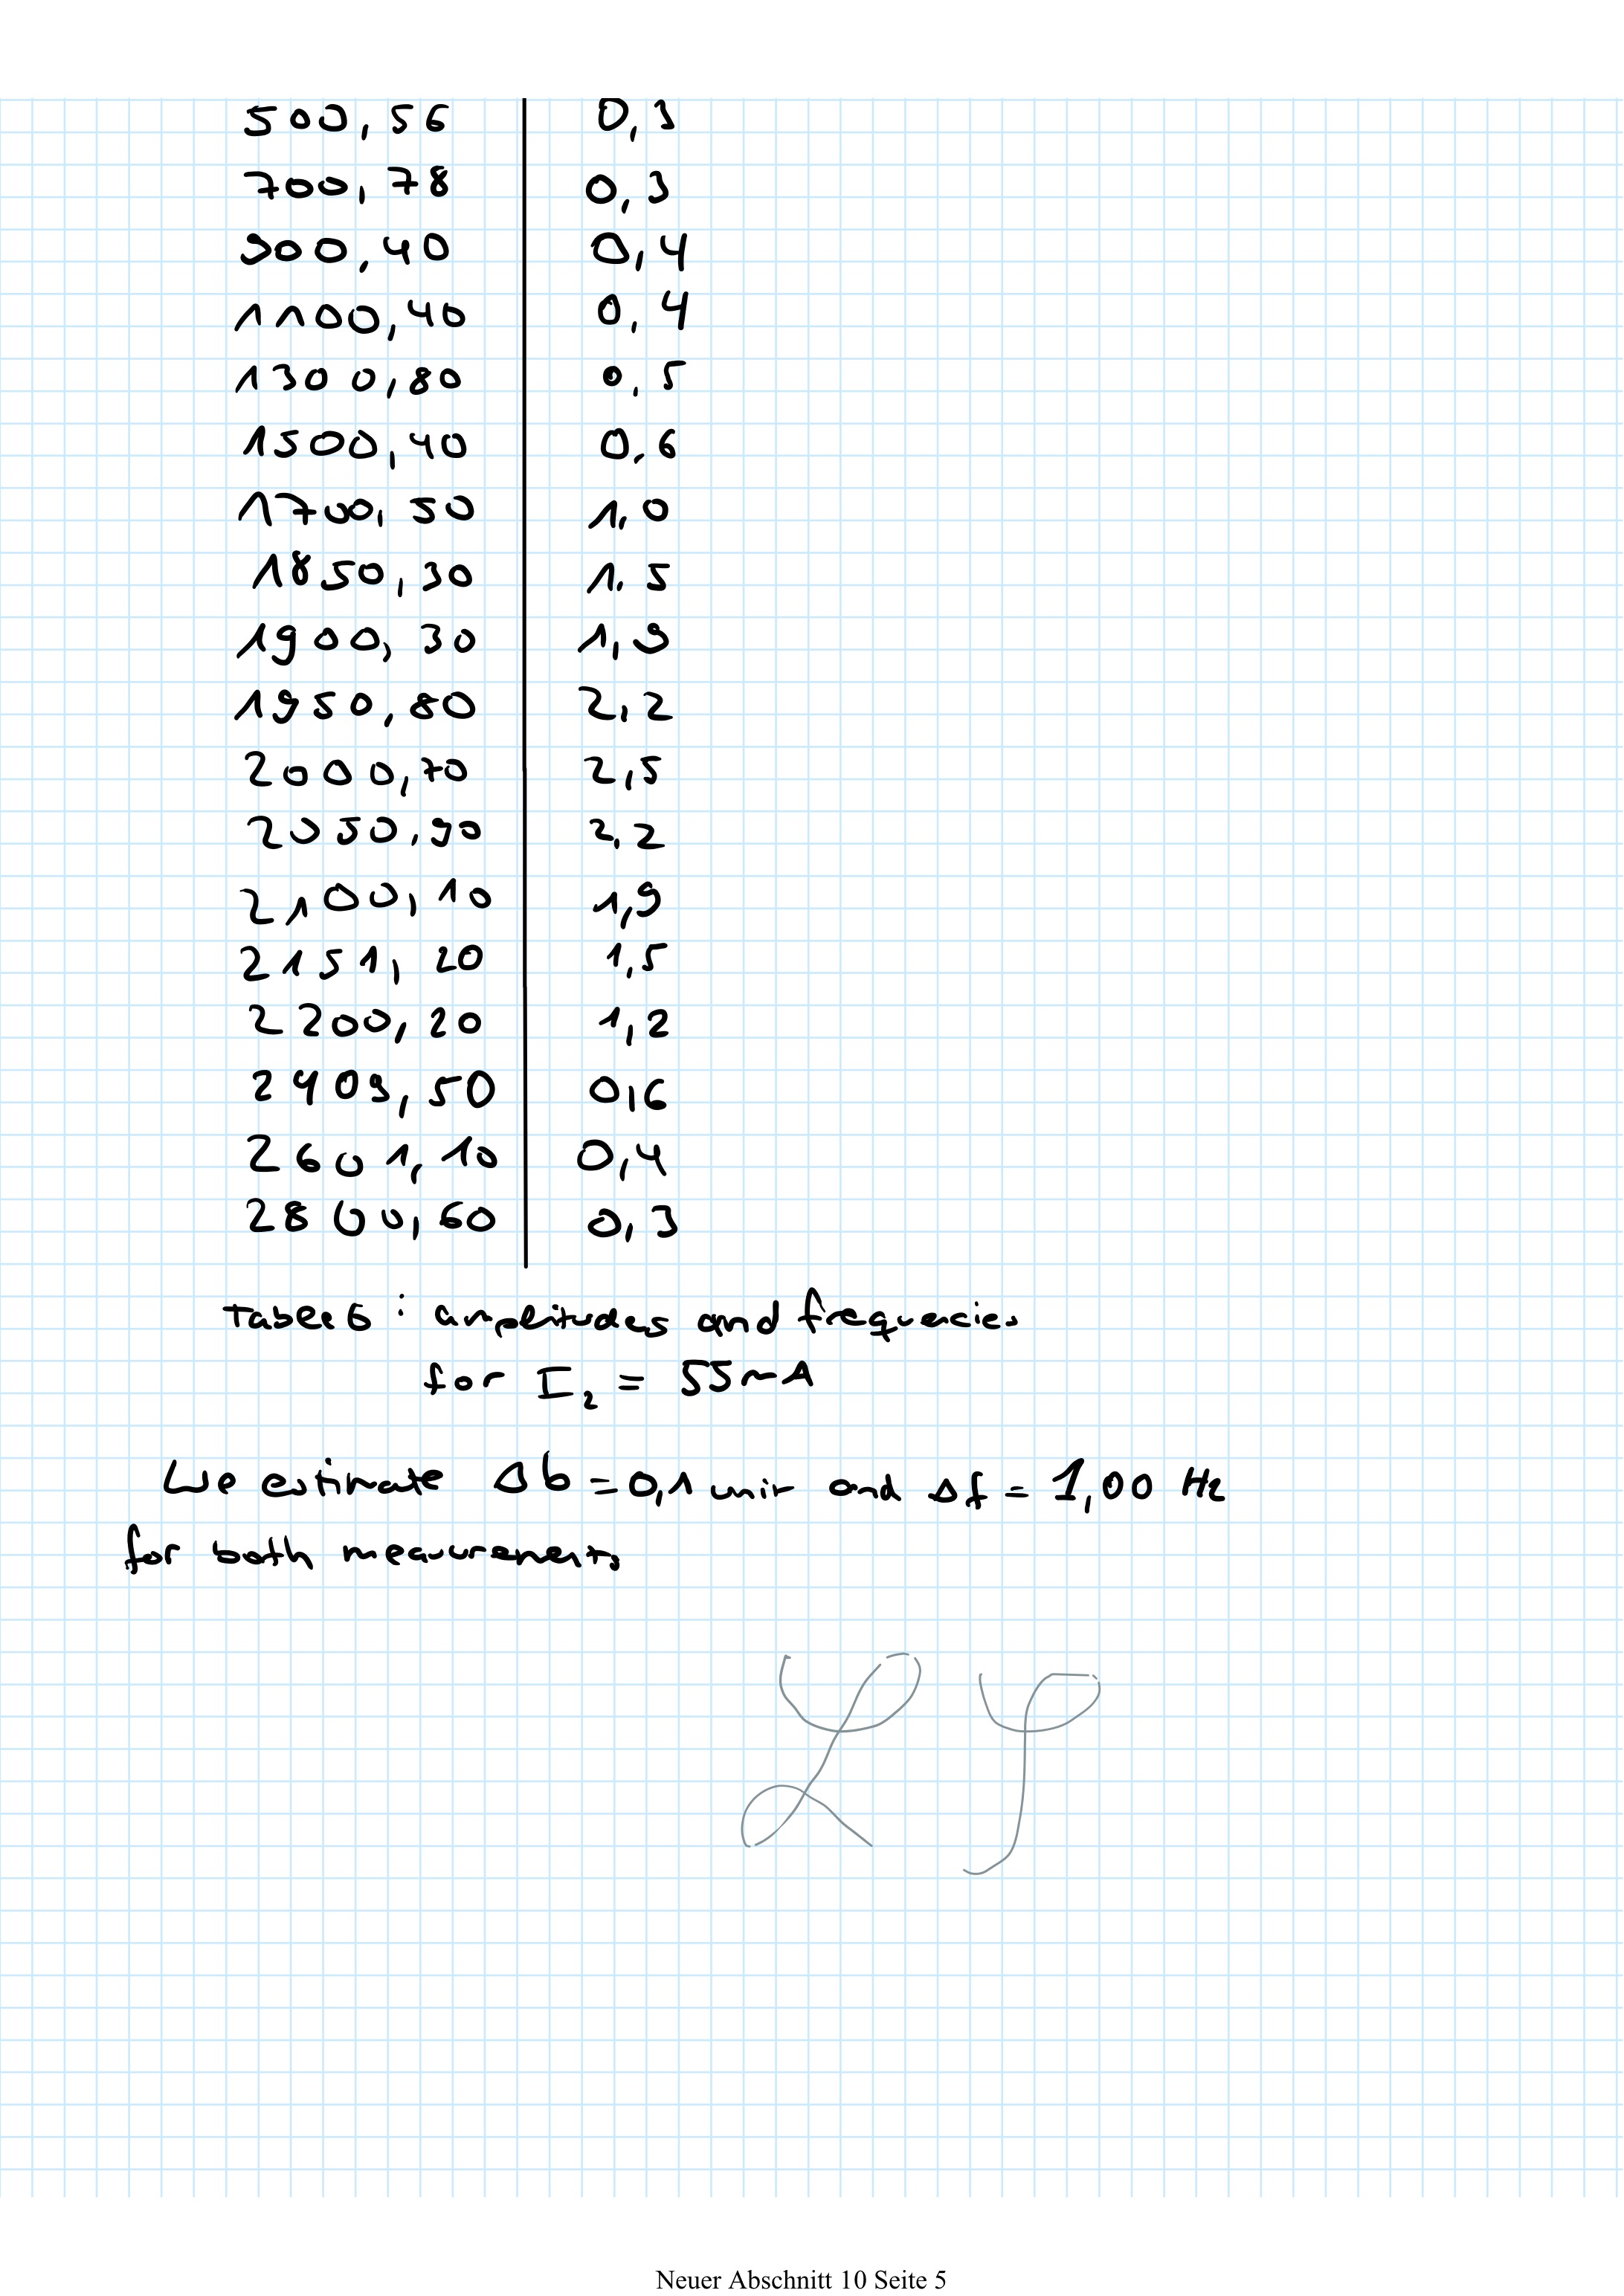 500,56 0,3
700,78 0,3
900,40 0,4
1100,40 0,4
1300,80 0,5
1500,40 0,6
1700,50 1,0
1850,30 1,5
1900,30 1,9
1950,80 2,2
2000,70 2,5
2050,90 2,2
2100,10 1,9
2151,20 1,5
2200,20 1,2
2409,50 0,6
2601,10 0,4
2800,60 0,3
Tabele 6 : amplitudes and frequencies
for I₂ = 55mA
We estimate Δb = 0,1 unit and Δf = 1,00 Hz
for both measurements
Neuer Abschnitt 10 Seite 5